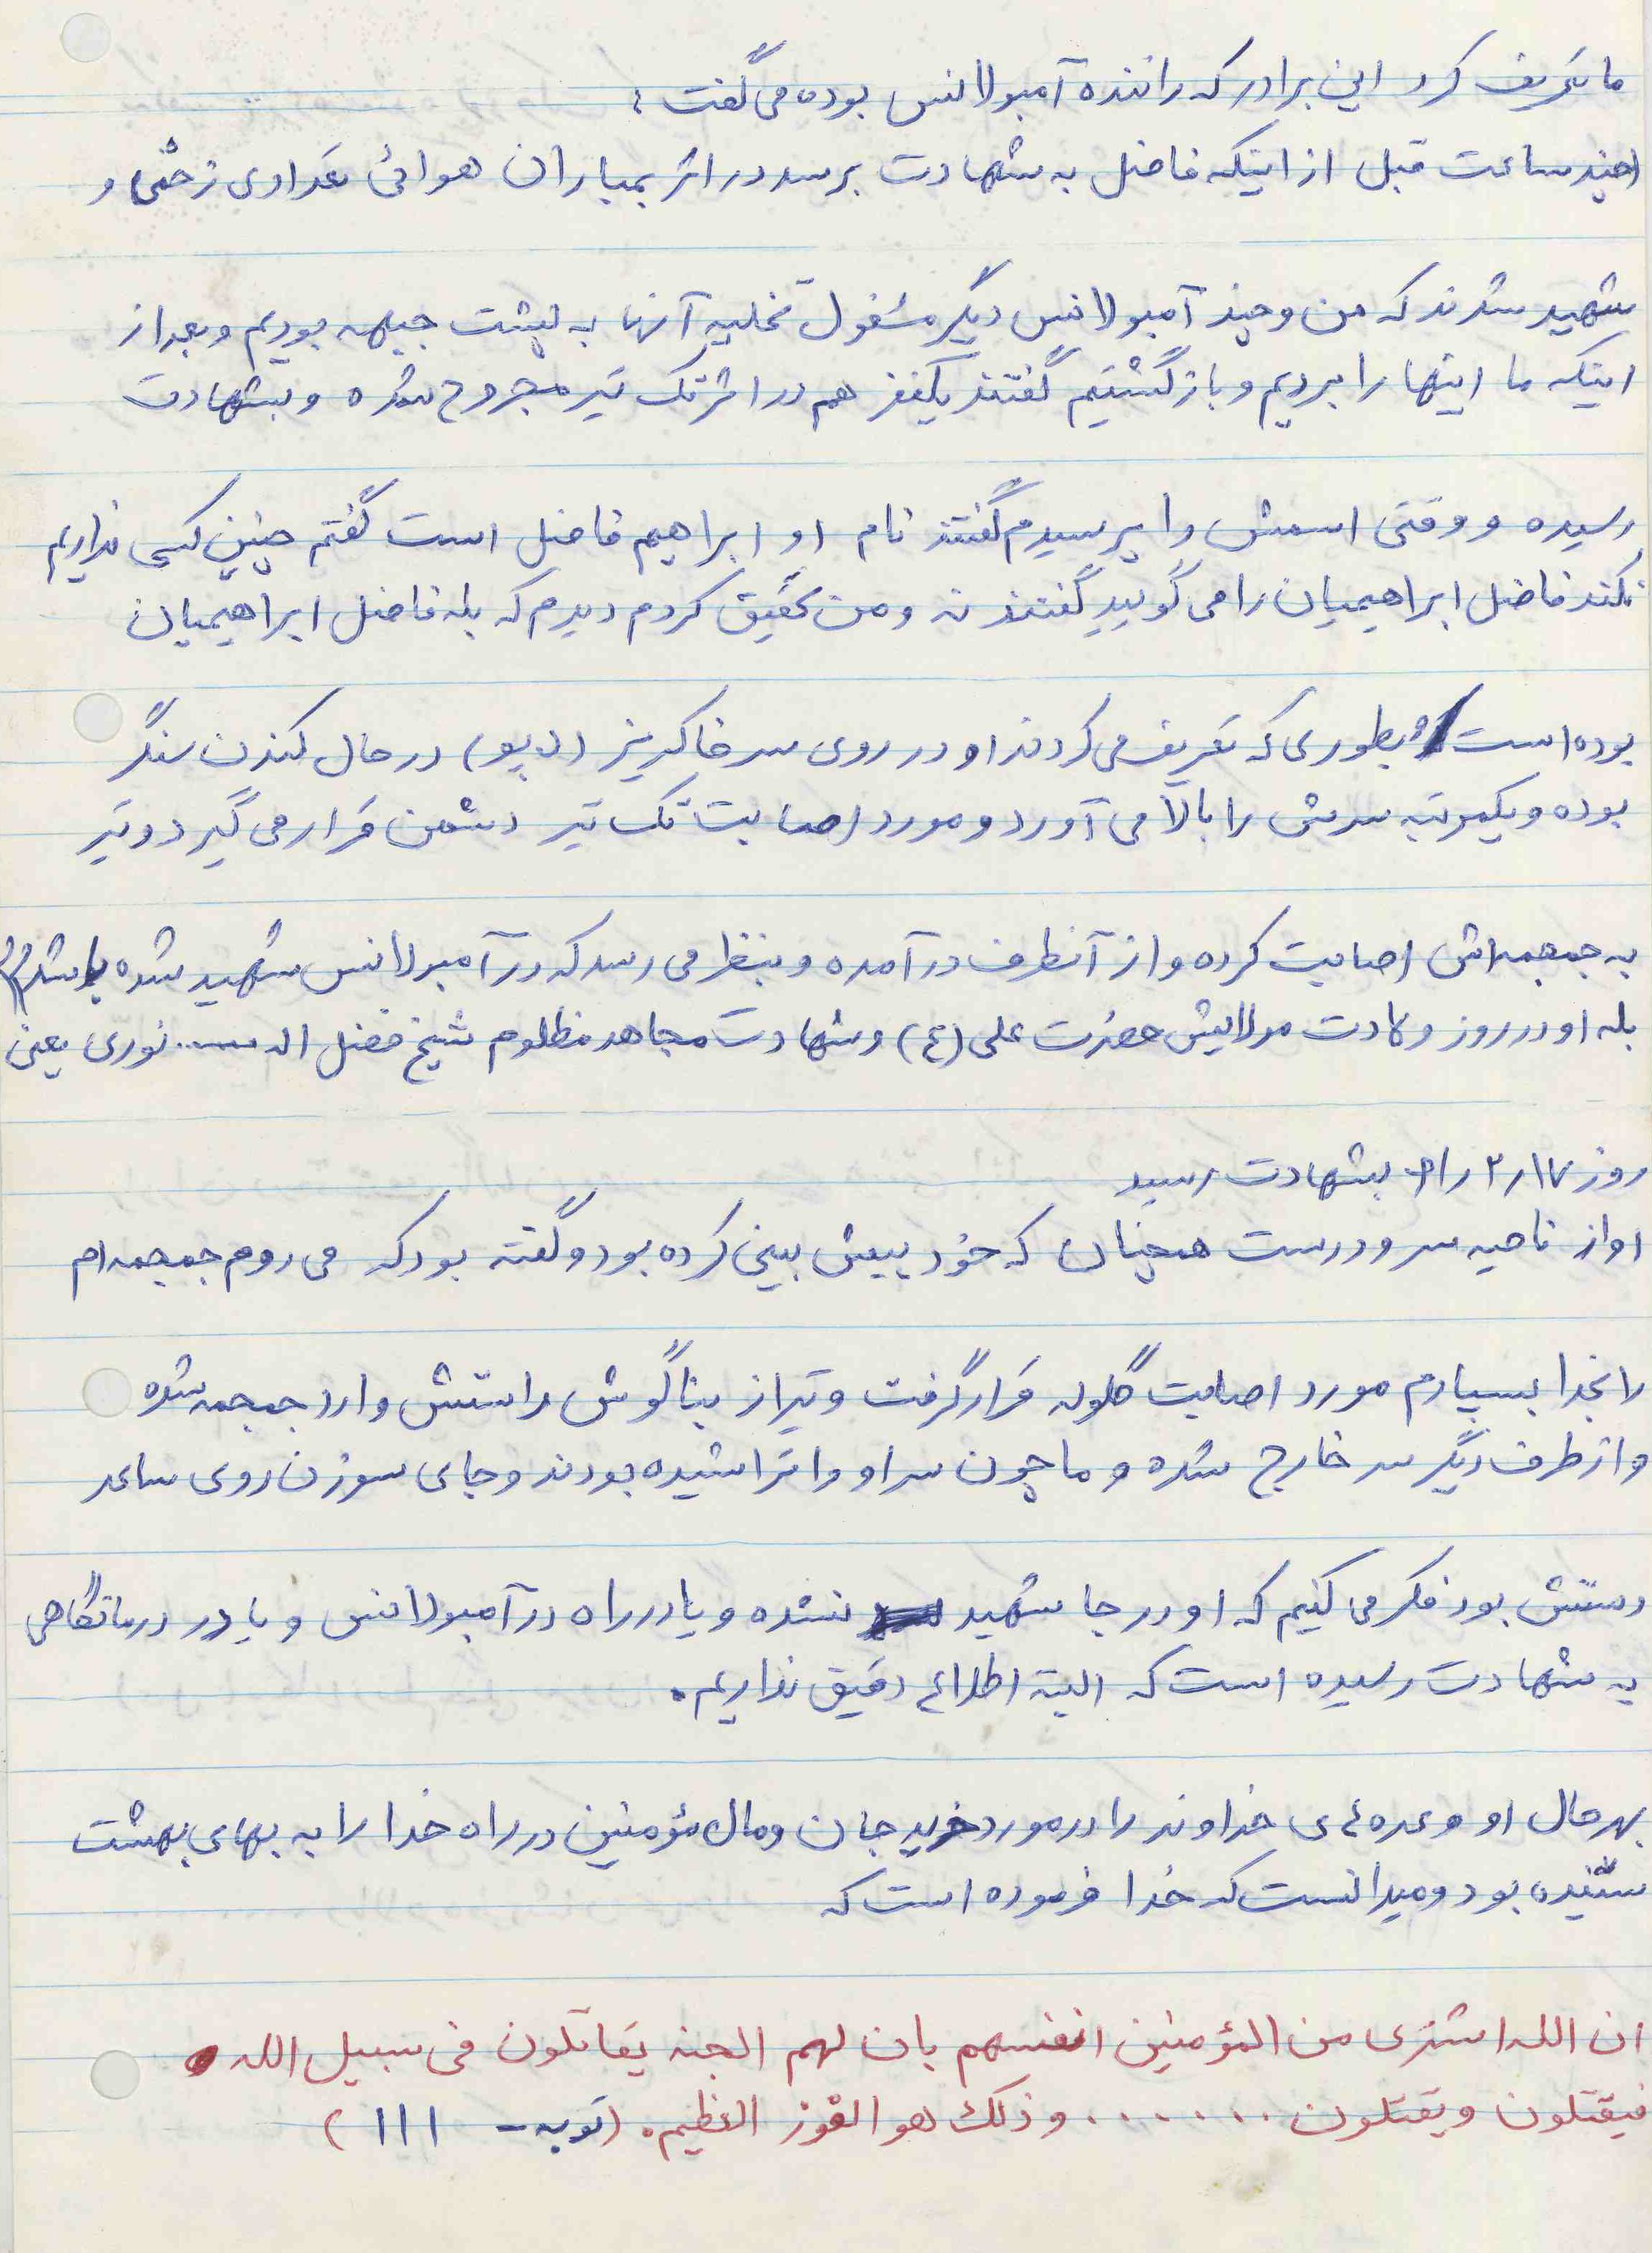 ما تعریف کرد این برادر که راننده آمبولانس بوده می گفت :
(چند ساعت قبل از اینکه فاضل به شهادت برسد در اثر بمباران هوائی تعدادی زخمی و
شهید شدند که من و چند آمبولانس دیگر مشغول تخلیه آنها به پشت جبهه بودیم و بعد از
اینکه ما اینها را بردیم و بازگشتیم گفتند یکنفر هم در اثر تک تیر مجروح شده و بشهادت
رسیده و وقتی اسمش را پرسیدم گفتند نام او ابراهیم فاضل است گفتم چنین کسی نداریم
نکند فاضل ابراهیمیان را می گویید گفتند نه و من تحقیق کردم دیدم که بله فاضل ابراهیمیان
بوده است بطوری که تعریف می کردند او در روی سر خاکریز (دپو) در حال کندن سنگر
بوده و یکمرتبه سرش را بالا می آورد و مورد اصابت تک تیر دشمن قرار می گیرد و تیر
به جمجمه اش اصابت کرده و از آنطرف در آمده و بنظر می رسد که در آمبولانس شهید شده باشد))
بله او در روز ولادت مولایش حضرت علی (ع) و شهادت مجاهد مظلوم شیخ فضل اله ..... نوری یعنی
روز ۱۷ر۲ر۶۱ بشهادت رسید
او از ناحیه سر و درست همچنان که خود پیش بینی کرده بود و گفته بود که می روم جمجمه ام
را بخدا بسپارم مورد اصابت گلوله قرار گرفت و تیر از بناگوش راستش وارد جمجمه شده
و از طرف دیگر سر خارج شده و ما چون سر او را تراشیده بودند و جای سوزن روی ساعد
دستش بود فکر می کنیم که او در جا شهید نشده و یا در راه در آمبولانس و یا در درمانگاهی
به شهادت رسیده است که البته اطلاع دقیق نداریم.
بهر حال او وعده ی خداوند را در مورد خرید جان و مال مؤمنین در راه خدا را به بهای بهشت
شنیده بود و میدانست که خدا فرموده است که
ان الله اشتری من المؤمنین انفسهم بان لهم الجنه یقاتلون فی سبیل الله
فیقتلون و یقتلون ....... و ذلک هو الفوز العظیم. (توبه - ۱۱۱)